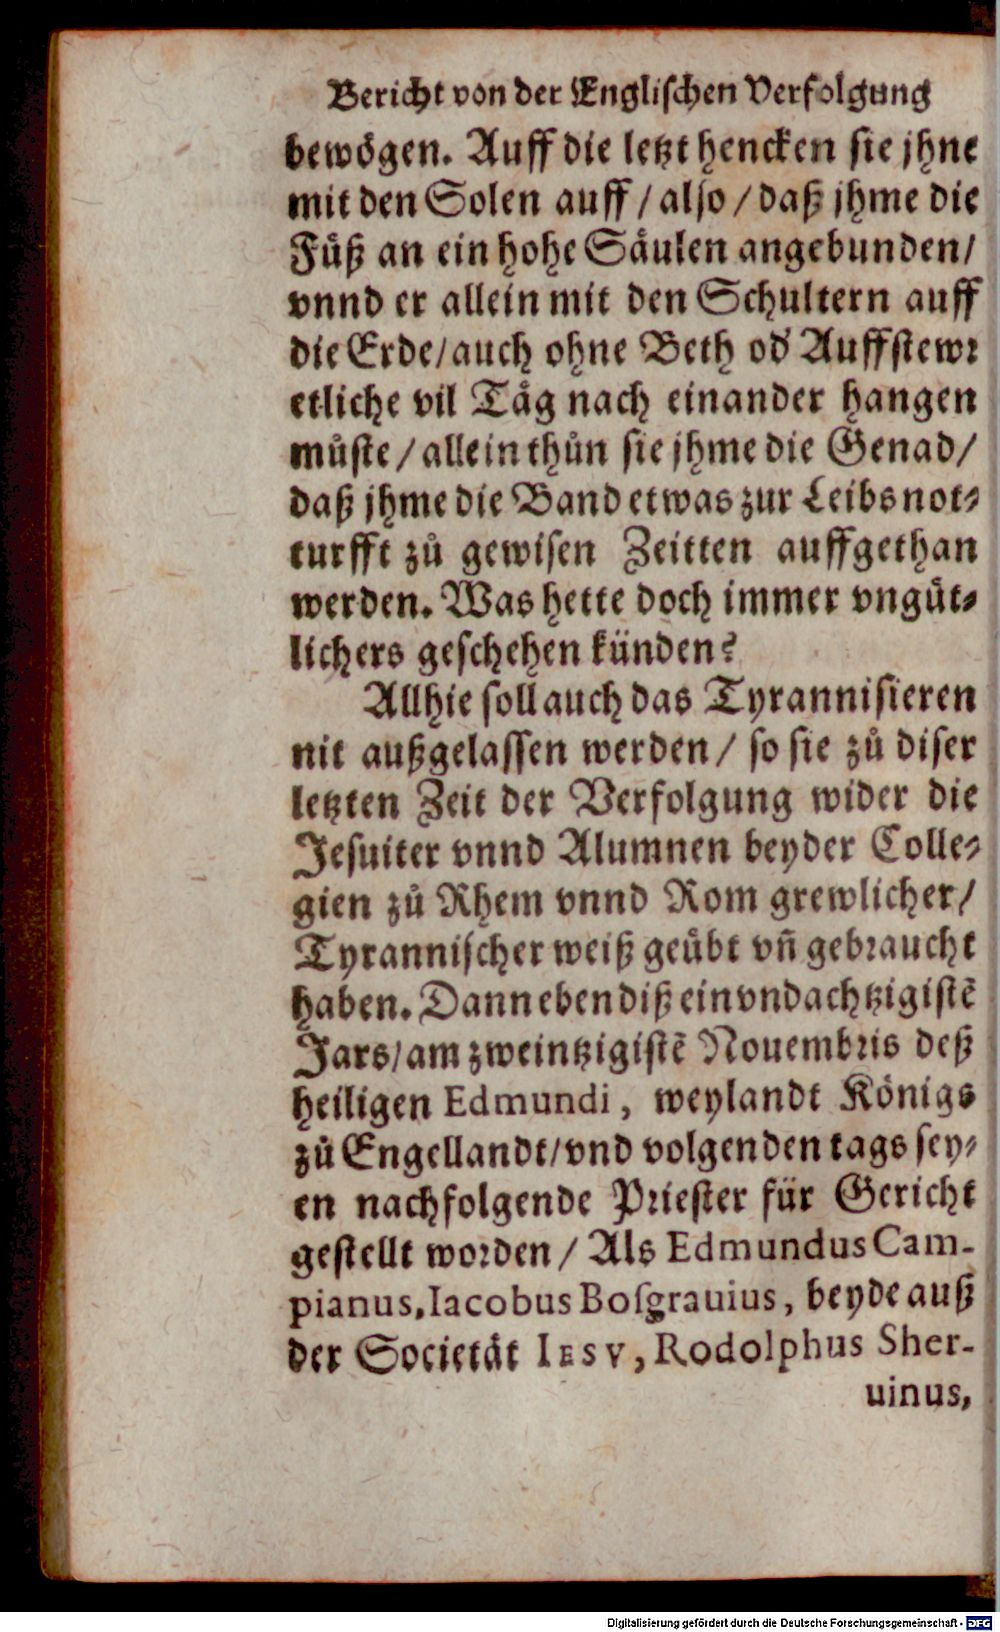 Bericht von der Englischen Verfolgung
bewögen. Auff die letzt hencken sie jhne
mit den Solen auff / also / daß jhme die
Füß an ein hohe Säulen angebunden/
vnnd er allein mit den Schultern auff
die Erde/auch ohne Beth od' Auffstewr
etliche vil Täg nach einander hangen
müste / allein thůn sie jhme die Genad/
daß jhme die Band etwas zur Leibs not-
turfft zů gewisen Zeitten auffgethan
werden. Was hette doch immer vngüt-
lichers geschehen künden?
Allhie soll auch das Tyrannisieren
nit außgelassen werden / so sie zů diser
letzten Zeit der Verfolgung wider die
Jesuiter vnnd Alumnen beyder Colle-
gien zů Rhem vnnd Rom grewlicher/
Tyrannischer weiß geübt vñ gebraucht
haben. Dann eben diß ein vnd achtzigistē
Jars/am zweintzigistē Nouembris deß
heiligen Edmundi, weylandt Königs
zů Engellandt/vnd volgenden tags sey-
en nachfolgende Priester für Gericht
gestellt worden / Als Edmundus Cam-
pianus, Iacobus Bosgrauius, beyde auß
der Societät IESV, Rodolphus Sher-
uinus,
Digitalisierung gefördert durch die Deutsche Forschungsgemeinschaft - DFG